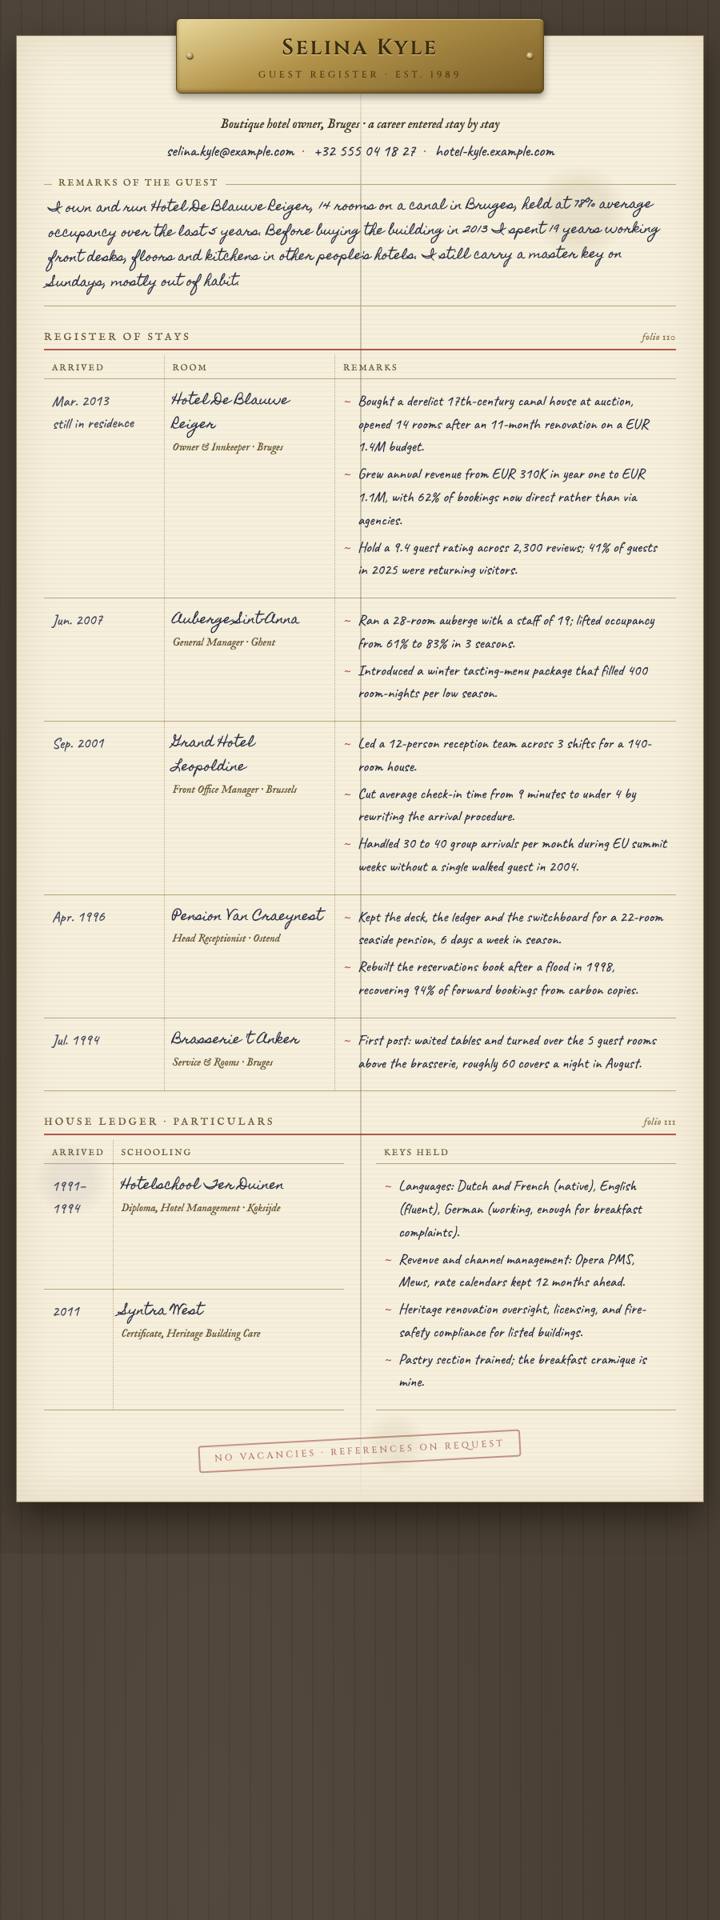 SELINA KYLE
GUEST REGISTER · EST. 1989
Boutique hotel owner, Bruges · a career entered stay by stay
selina.kyle@example.com · +32 555 04 18 27 · hotel-kyle.example.com
REMARKS OF THE GUEST
I own and run Hotel De Blauwe Reiger, 14 rooms on a canal in Bruges, held at 78% average
occupancy over the last 5 years. Before buying the building in 2013 I spent 19 years working
front desks, floors and kitchens in other people's hotels. I still carry a master key on
Sundays, mostly out of habit.
REGISTER OF STAYS
folio 110
ARRIVED
ROOM
REMARKS
Mar. 2013
still in residence
Hotel De Blauwe
Reiger
Owner & Innkeeper · Bruges
~ Bought a derelict 17th-century canal house at auction,
opened 14 rooms after an 11-month renovation on a EUR
1.4M budget.
~ Grew annual revenue from EUR 310K in year one to EUR
1.1M, with 62% of bookings now direct rather than via
agencies.
~ Hold a 9.4 guest rating across 2,300 reviews; 41% of guests
in 2025 were returning visitors.
Jun. 2007
Auberge Sint-Anna
General Manager · Ghent
~ Ran a 28-room auberge with a staff of 19; lifted occupancy
from 61% to 83% in 3 seasons.
~ Introduced a winter tasting-menu package that filled 400
room-nights per low season.
Sep. 2001
Grand Hotel
Leopoldine
Front Office Manager · Brussels
~ Led a 12-person reception team across 3 shifts for a 140-
room house.
~ Cut average check-in time from 9 minutes to under 4 by
rewriting the arrival procedure.
~ Handled 30 to 40 group arrivals per month during EU summit
weeks without a single walked guest in 2004.
Apr. 1996
Pension Van Craeynest
Head Receptionist · Ostend
~ Kept the desk, the ledger and the switchboard for a 22-room
seaside pension, 6 days a week in season.
~ Rebuilt the reservations book after a flood in 1998,
recovering 94% of forward bookings from carbon copies.
Jul. 1994
Brasserie 't Anker
Service & Rooms · Bruges
~ First post: waited tables and turned over the 5 guest rooms
above the brasserie, roughly 60 covers a night in August.
HOUSE LEDGER · PARTICULARS
folio 111
ARRIVED
SCHOOLING
1991–
1994
Hotelschool Ter Duinen
Diploma, Hotel Management · Koksijde
2011
Syntra West
Certificate, Heritage Building Care
KEYS HELD
~ Languages: Dutch and French (native), English
(fluent), German (working, enough for breakfast
complaints).
~ Revenue and channel management: Opera PMS,
Mews, rate calendars kept 12 months ahead.
~ Heritage renovation oversight, licensing, and fire-
safety compliance for listed buildings.
~ Pastry section trained; the breakfast cramique is
mine.
NO VACANCIES · REFERENCES ON REQUEST